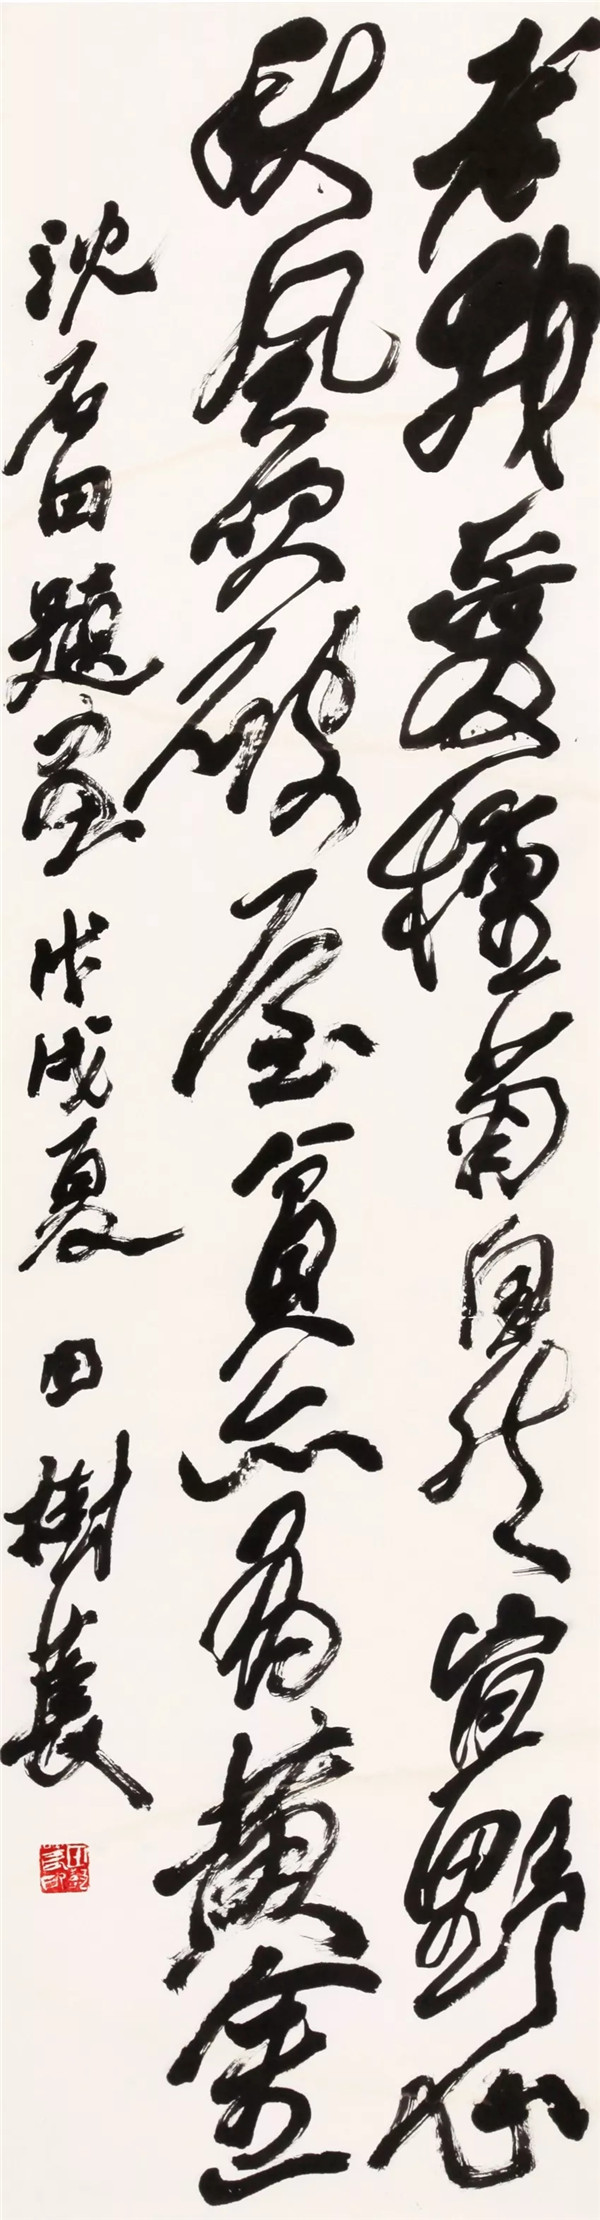 老我愛種菊自然宜野心
秋風吹破屋貧亦有黃金
沈石田題畫 戊戌夏 田樹萇